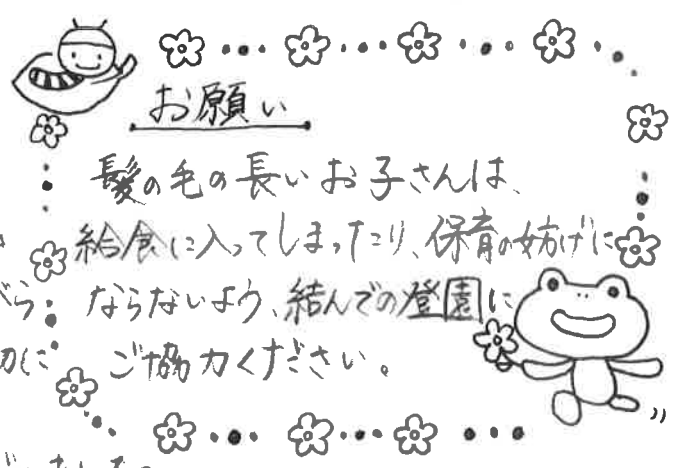 お願い
髪の毛の長いお子さんは、
給食に入ってしまったり、保育の妨げに
ならないよう、結んでの登園に
ご協力ください。